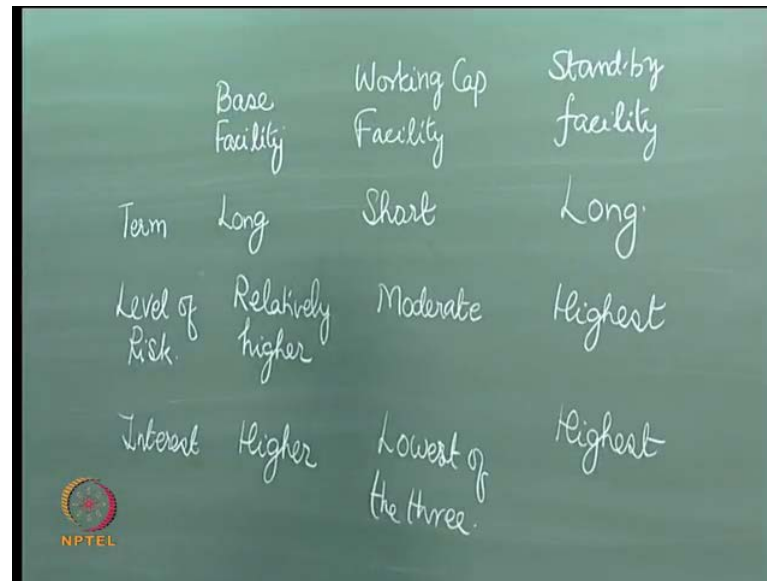 Base Facility
Working Cap Facility
Stand-by facility
Term Long Short Long.
Level of Risk. Relatively higher Moderate Highest
Interest Higher Lowest of the three. Highest
NPTEL